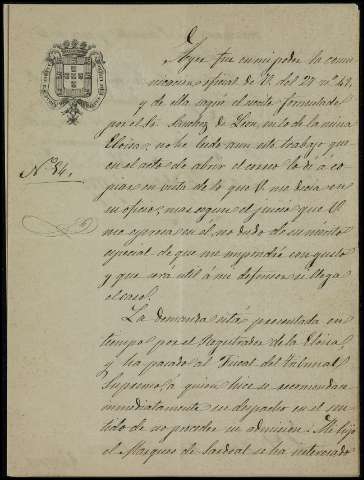 Ayer fue en mi poder la comu
nicacion oficial de V. del 27 nº 43,
y de ella saqué el escrito formulado
por el Sr. Sanchez de Leon, en lo de la mina
Eloisa; no he leido aun su trabajo que
en el acto de abrir el correo lo dí á co
piar en vista de lo que V. me decia en
Nº 54.
su oficio; mas segun el juicio que V.
me espresa en el, no dudo de su merito
especial de que me impondré con gusto
y que será util á mi defensor si llega
el caso.
La demanda está presentada en
tiempo por el Registrador de la Eloisa,
y ha pasado al Fiscal del Tribunal
Supremo, á quien hice se recomendara
inmediatamente su despacho en el sen
tido de no proceder su admision. Mi hijo
el Marques de Sardoal se ha interesado